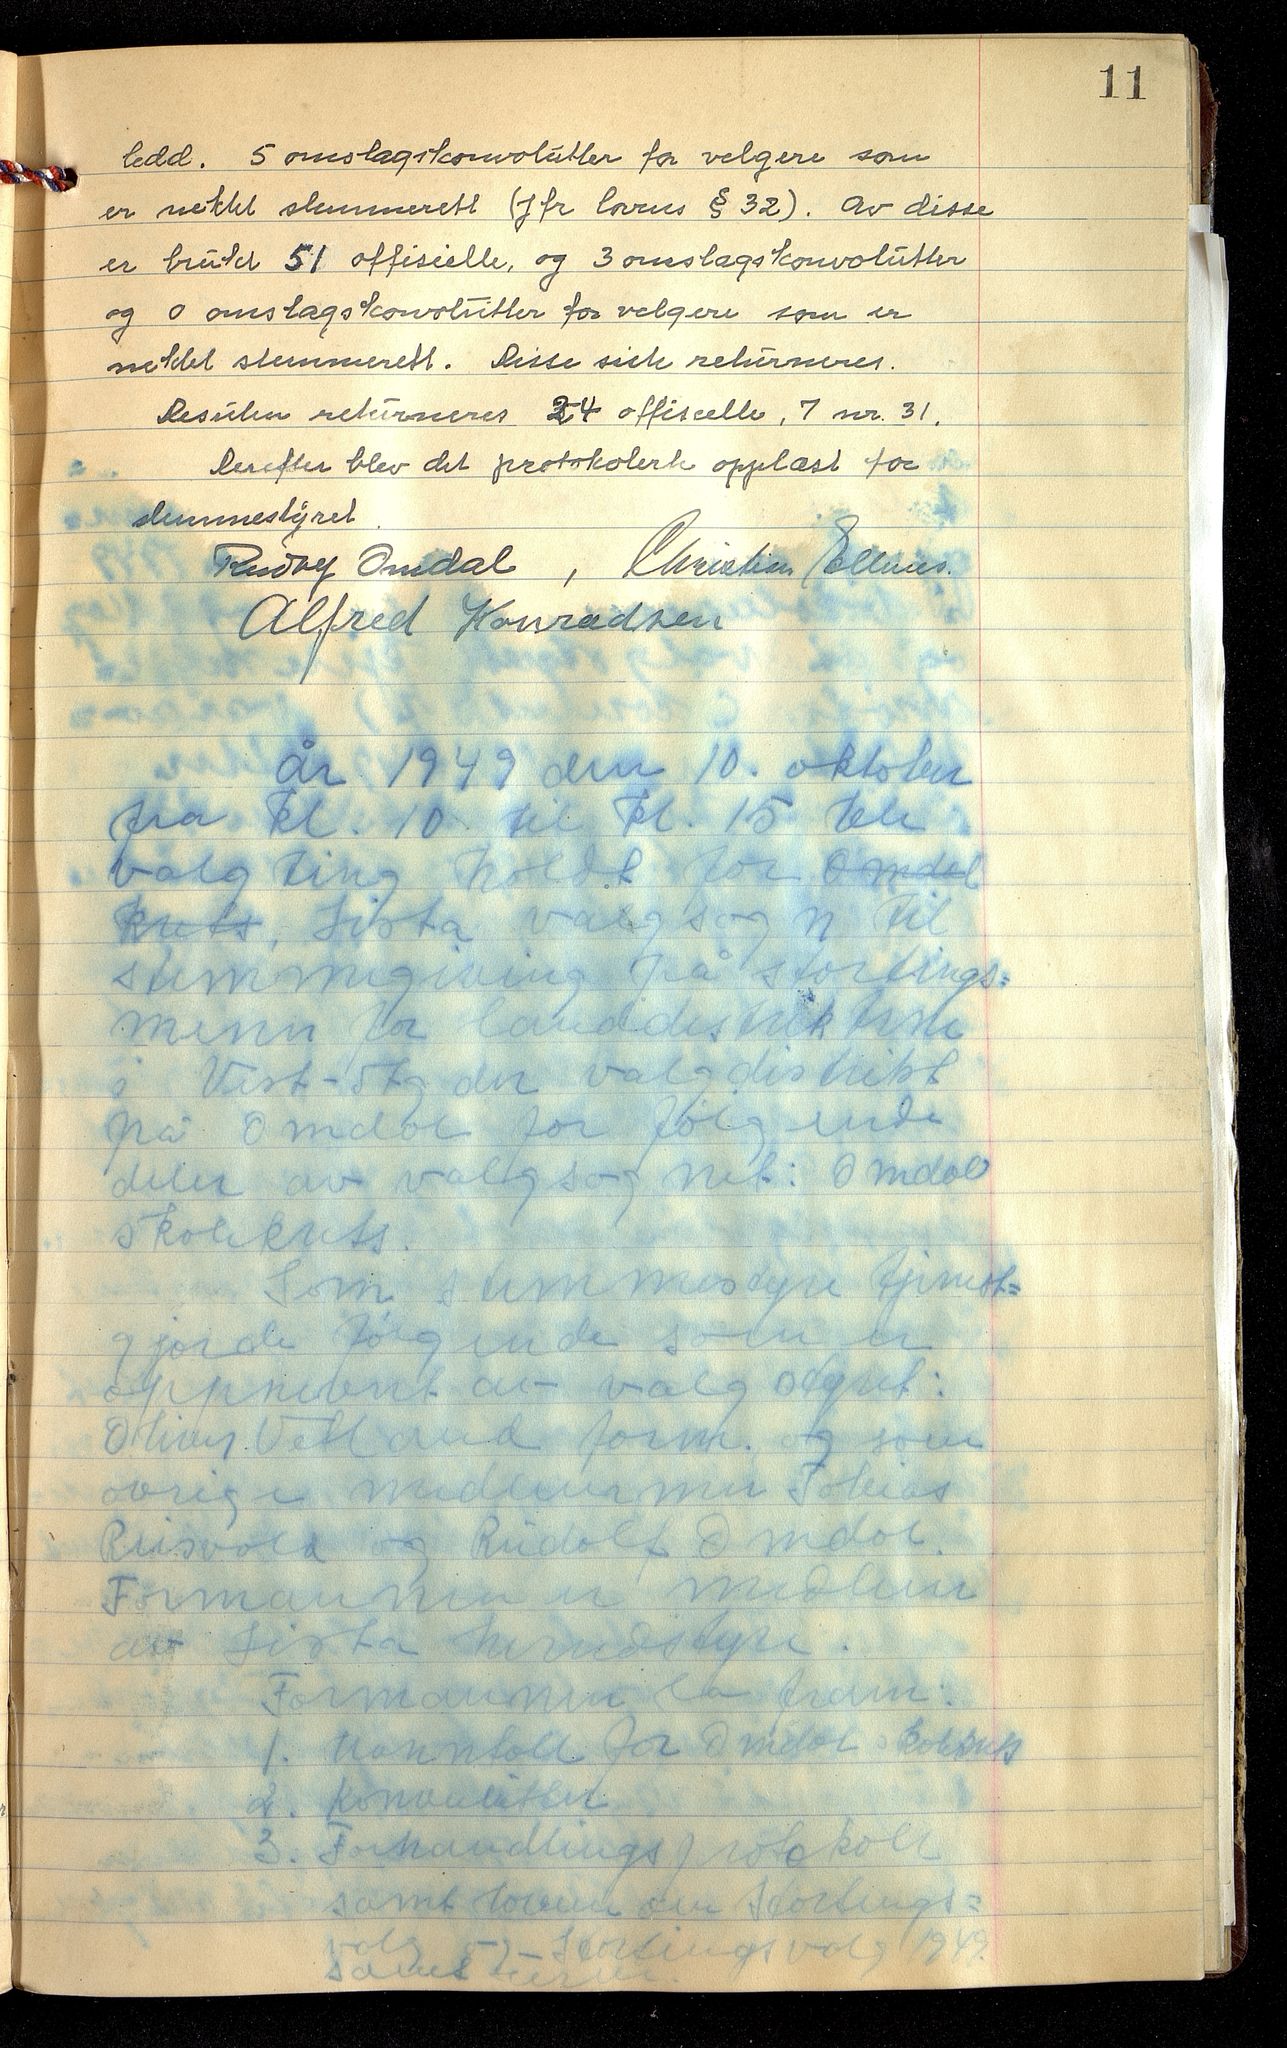 11
ledd. 5 omslagskonvolutter for velgere som
er nektet stemmerett (jfr lovens § 32). Av disse
er brukt 51 offisielle, og 3 omslagskonvolutter
og 0 omslagskonvolutter for velgere som er
nektet stemmerett. Disse siste returneres.
Desuten returneres 24 offiscelle, 7 nr. 31.
Derefter blev det protokolerte opplæst for
stemmestyret.
Omdal, Christian
Alfred Konradsen
år 1949 den 10. oktober
fra kl. 10 til kl. 15 ble
valgting holdt for Omdal
krets, Lista valgsogn til
stemmegiving på stortings=
menn for landdistriktene
i Vest-Agder valgdistrikt
på Omdal for følgende
deler av valgsognet: Omdal
skolekrets.
Som stemmestyre tjenest=
gjorde følgende som er
oppnevnt av valgstyret:
Oliver Vetland form. og som
øvrige medlemmer Tobias
Reisvold og Rudolf Omdal.
Formannen er medlem
av Lista herredstyre.
Formannen la fram:
1. Manntall for Omdal skolekrets
2. Konvolutter
3. Forhandlingsprotokoll
samt loven om Stortings=
valg og Stortingsvalg 1949.